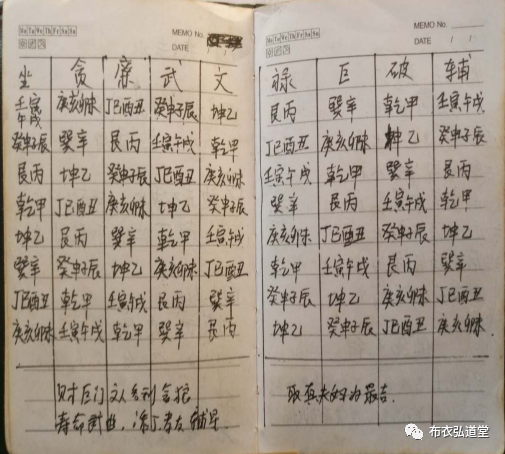 MEMO No.
Mo Tu We Th Fr Sa Su
DATE
坐 贪 廉 武 文
壬寅午戌 庚亥卯未 丁巳酉丑 癸申子辰 坤乙
癸申子辰 巽辛 艮丙 壬寅午戌 乾甲
艮丙 坤乙 癸申子辰 丁巳酉丑 庚亥卯未
乾甲 丁巳酉丑 庚亥卯未 坤乙 癸申子辰
坤乙 艮丙 巽辛 乾甲 壬寅午戌
巽辛 癸申子辰 坤乙 庚亥卯未 丁巳酉丑
丁巳酉丑 乾甲 壬寅午戌 艮丙 巽辛
庚亥卯未 壬寅午戌 乾甲 巽辛 艮丙
财巨门 文人名利贪狼
寿命武曲,添丁孝友辅星
MEMO No.
Mo Tu We Th Fr Sa Su
DATE / /
禄 巨 破 辅
艮丙 巽辛 乾甲 壬寅午戌
丁巳酉丑 庚亥卯未 坤乙 癸申子辰
壬寅午戌 乾甲 巽辛 艮丙
巽辛 艮丙 壬寅午戌 乾甲
庚亥卯未 丁巳酉丑 癸申子辰 坤乙
乾甲 壬寅午戌 艮丙 巽辛
癸申子辰 坤乙 庚亥卯未 丁巳酉丑
坤乙 癸申子辰 丁巳酉丑 庚亥卯未.
夫妇为最吉.
布衣弘道堂